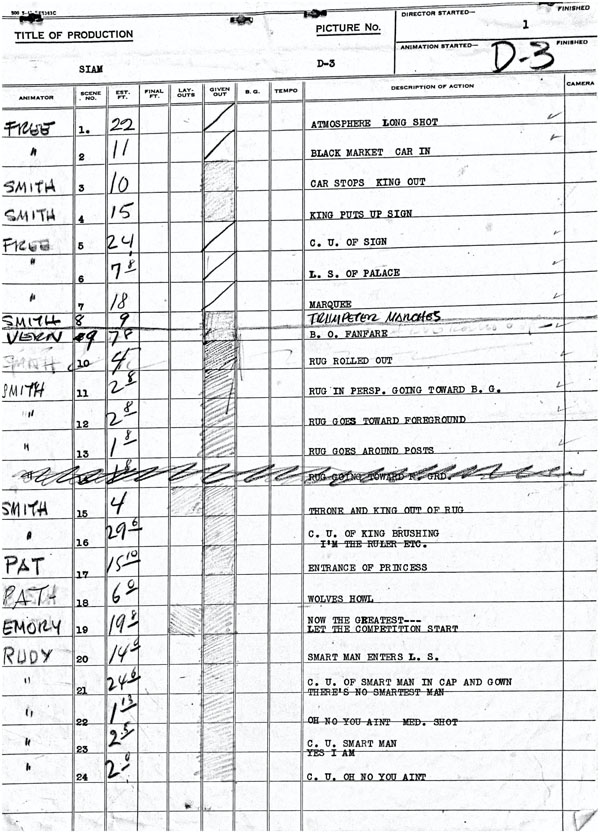 DIRECTOR STARTED— FINISHED
TITLE OF PRODUCTION PICTURE No. 1
ANIMATION STARTED— FINISHED
SIAM D-3 D-3
ANIMATOR SCENE NO. EST. FT. FINAL FT. LAY-OUTS GIVEN OUT B. G. TEMPO DESCRIPTION OF ACTION CAMERA
FREE 1. 22 ATMOSPHERE LONG SHOT
" 2 11 BLACK MARKET CAR IN
SMITH 3 10 CAR STOPS KING OUT
SMITH 4 15 KING PUTS UP SIGN
FREE 5 24 C. U. OF SIGN
" 6 7 8 L. S. OF PALACE
" 7 18 MARQUEE
SMITH 8 9 TRUMPETER MARCHES
VERN 9 78 B. O. FANFARE
SMITH 10 4 RUG ROLLED OUT
SMITH 11 2 8 RUG IN PERSP. GOING TOWARD B. G.
" 12 2 8 RUG GOES TOWARD FOREGROUND
" 13 1 8 RUG GOES AROUND POSTS
RUG GOING TOWARD GRD.
SMITH 15 4 THRONE AND KING OUT OF RUG
" 16 29 6 C. U. OF KING BRUSHING
I'M THE RULER ETC.
PAT 17 15 10 ENTRANCE OF PRINCESS
PAT 18 6 0 WOLVES HOWL
EMORY 19 19 8 NOW THE GREATEST---
LET THE COMPETITION START
RUDY 20 14 0 SMART MAN ENTERS L. S.
" 21 24 6 C. U. OF SMART MAN IN CAP AND GOWN
THERE'S NO SMARTEST MAN
" 22 1 13 OH NO YOU AINT MED. SHOT
" 23 2 C. U. SMART MAN
YES I AM
" 24 2 C. U. OH NO YOU AINT